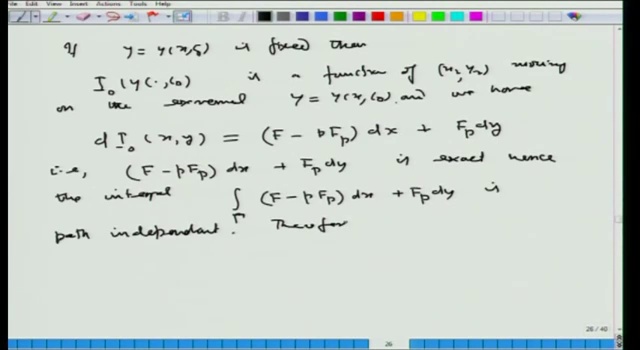 File Edit View Insert Actions Tools Help
If y = y(x,c₀) is fixed then
I₀(y(·,c₀) is a function of (x₂,y₂) moving
on the extremal y = y(x,c₀) and we have
dI₀(x,y) = (F - pFp) dx + Fp dy
i.e, (F - pFp) dx + Fp dy is exact hence
the integral ∫Γ (F - pFp) dx + Fp dy is
path independant. Therefor
26 / 40
26